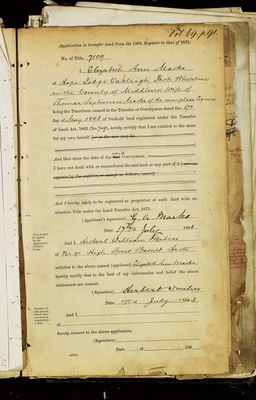 Vol. 69. p. 91.
Application to transfer land from the 1862 Register to that of 1875.
No. of Title 7109
I Elizabeth Ann Marks
of Hope Lodge Oakleigh Park Whetstone
in the County of Middlesex Wife of
Thomas Marks of the same place Esquire
being the Transferee named in the Transfer or Conveyance dated the
day of May 1898 of freehold land registered under the Transfer
of Land Act, 1862 (No. 7109), hereby certify that I am entitled to the same
for my own benefit [or as the case may be
And that since the date of the said Conveyance,
I have not dealt with or encumbered the said land or any part of it [except as
appears by the register, or except as follows, namely
And I hereby apply to be registered as proprietor of such land with an
Absolute Title under the Land Transfer Act, 1875.
(Applicant's signature) E. A. Marks
Date, 17th July 1898.
And I Herbert William
of No. 91 High Street Barnet Herts
solicitor to the above named (applicant) Elizabeth Ann Marks
hereby certify that to the best of my information and belief the above
statements are correct.
(Signature) Herbert
Date July 1898.
And I
of
hereby consent to the above application.
(Signature)
Date of 189